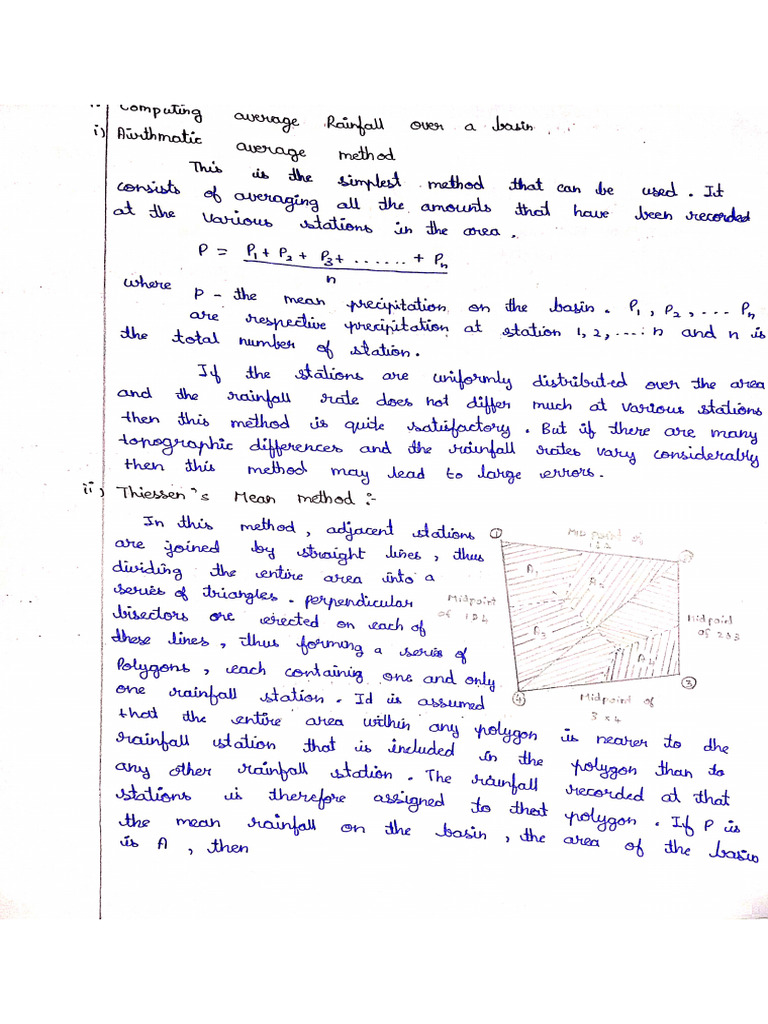 Computing average Rainfall over a basin ...
i) Airthmatic average method
This is the simplest method that can be used. It
consists of averaging all the amounts that have been recorded
at the various stations in the area.
P = P1 + P2 + P3 + ...... + Pn
n
where P - the mean precipitation on the basin. P1, P2, ... Pn
are respective precipitation at station 1, 2, ...: n and n is
the total number of station.
If the stations are uniformly distributed over the area
and the rainfall rate does not differ much at various stations
then this method is quite satisfactory. But if there are many
topographic differences and the rainfall rates vary considerably
then this method may lead to large errors.
ii) Thiessen's Mean method :-
In this method, adjacent stations
are joined by straight lines, thus
dividing the entire area into a
series of triangles. perpendicular
bisectors are erected on each of
these lines, thus forming a series of
Polygons, each containing one and only
one rainfall station. Id is assumed
that the entire area within any polygon is nearer to the
rainfall station that is included in the polygon than to
any other rainfall station. The rainfall recorded at that
stations is therefore assigned to that polygon. If P is
the mean rainfall on the basin, the area of the basin
is A, then
1
Midpoint of
1 & 2
2
A1
A2
Midpoint
of 1 & 4
Midpoid
of 2 & 3
A3
A4
4
3
Midpoint of
3 x 4